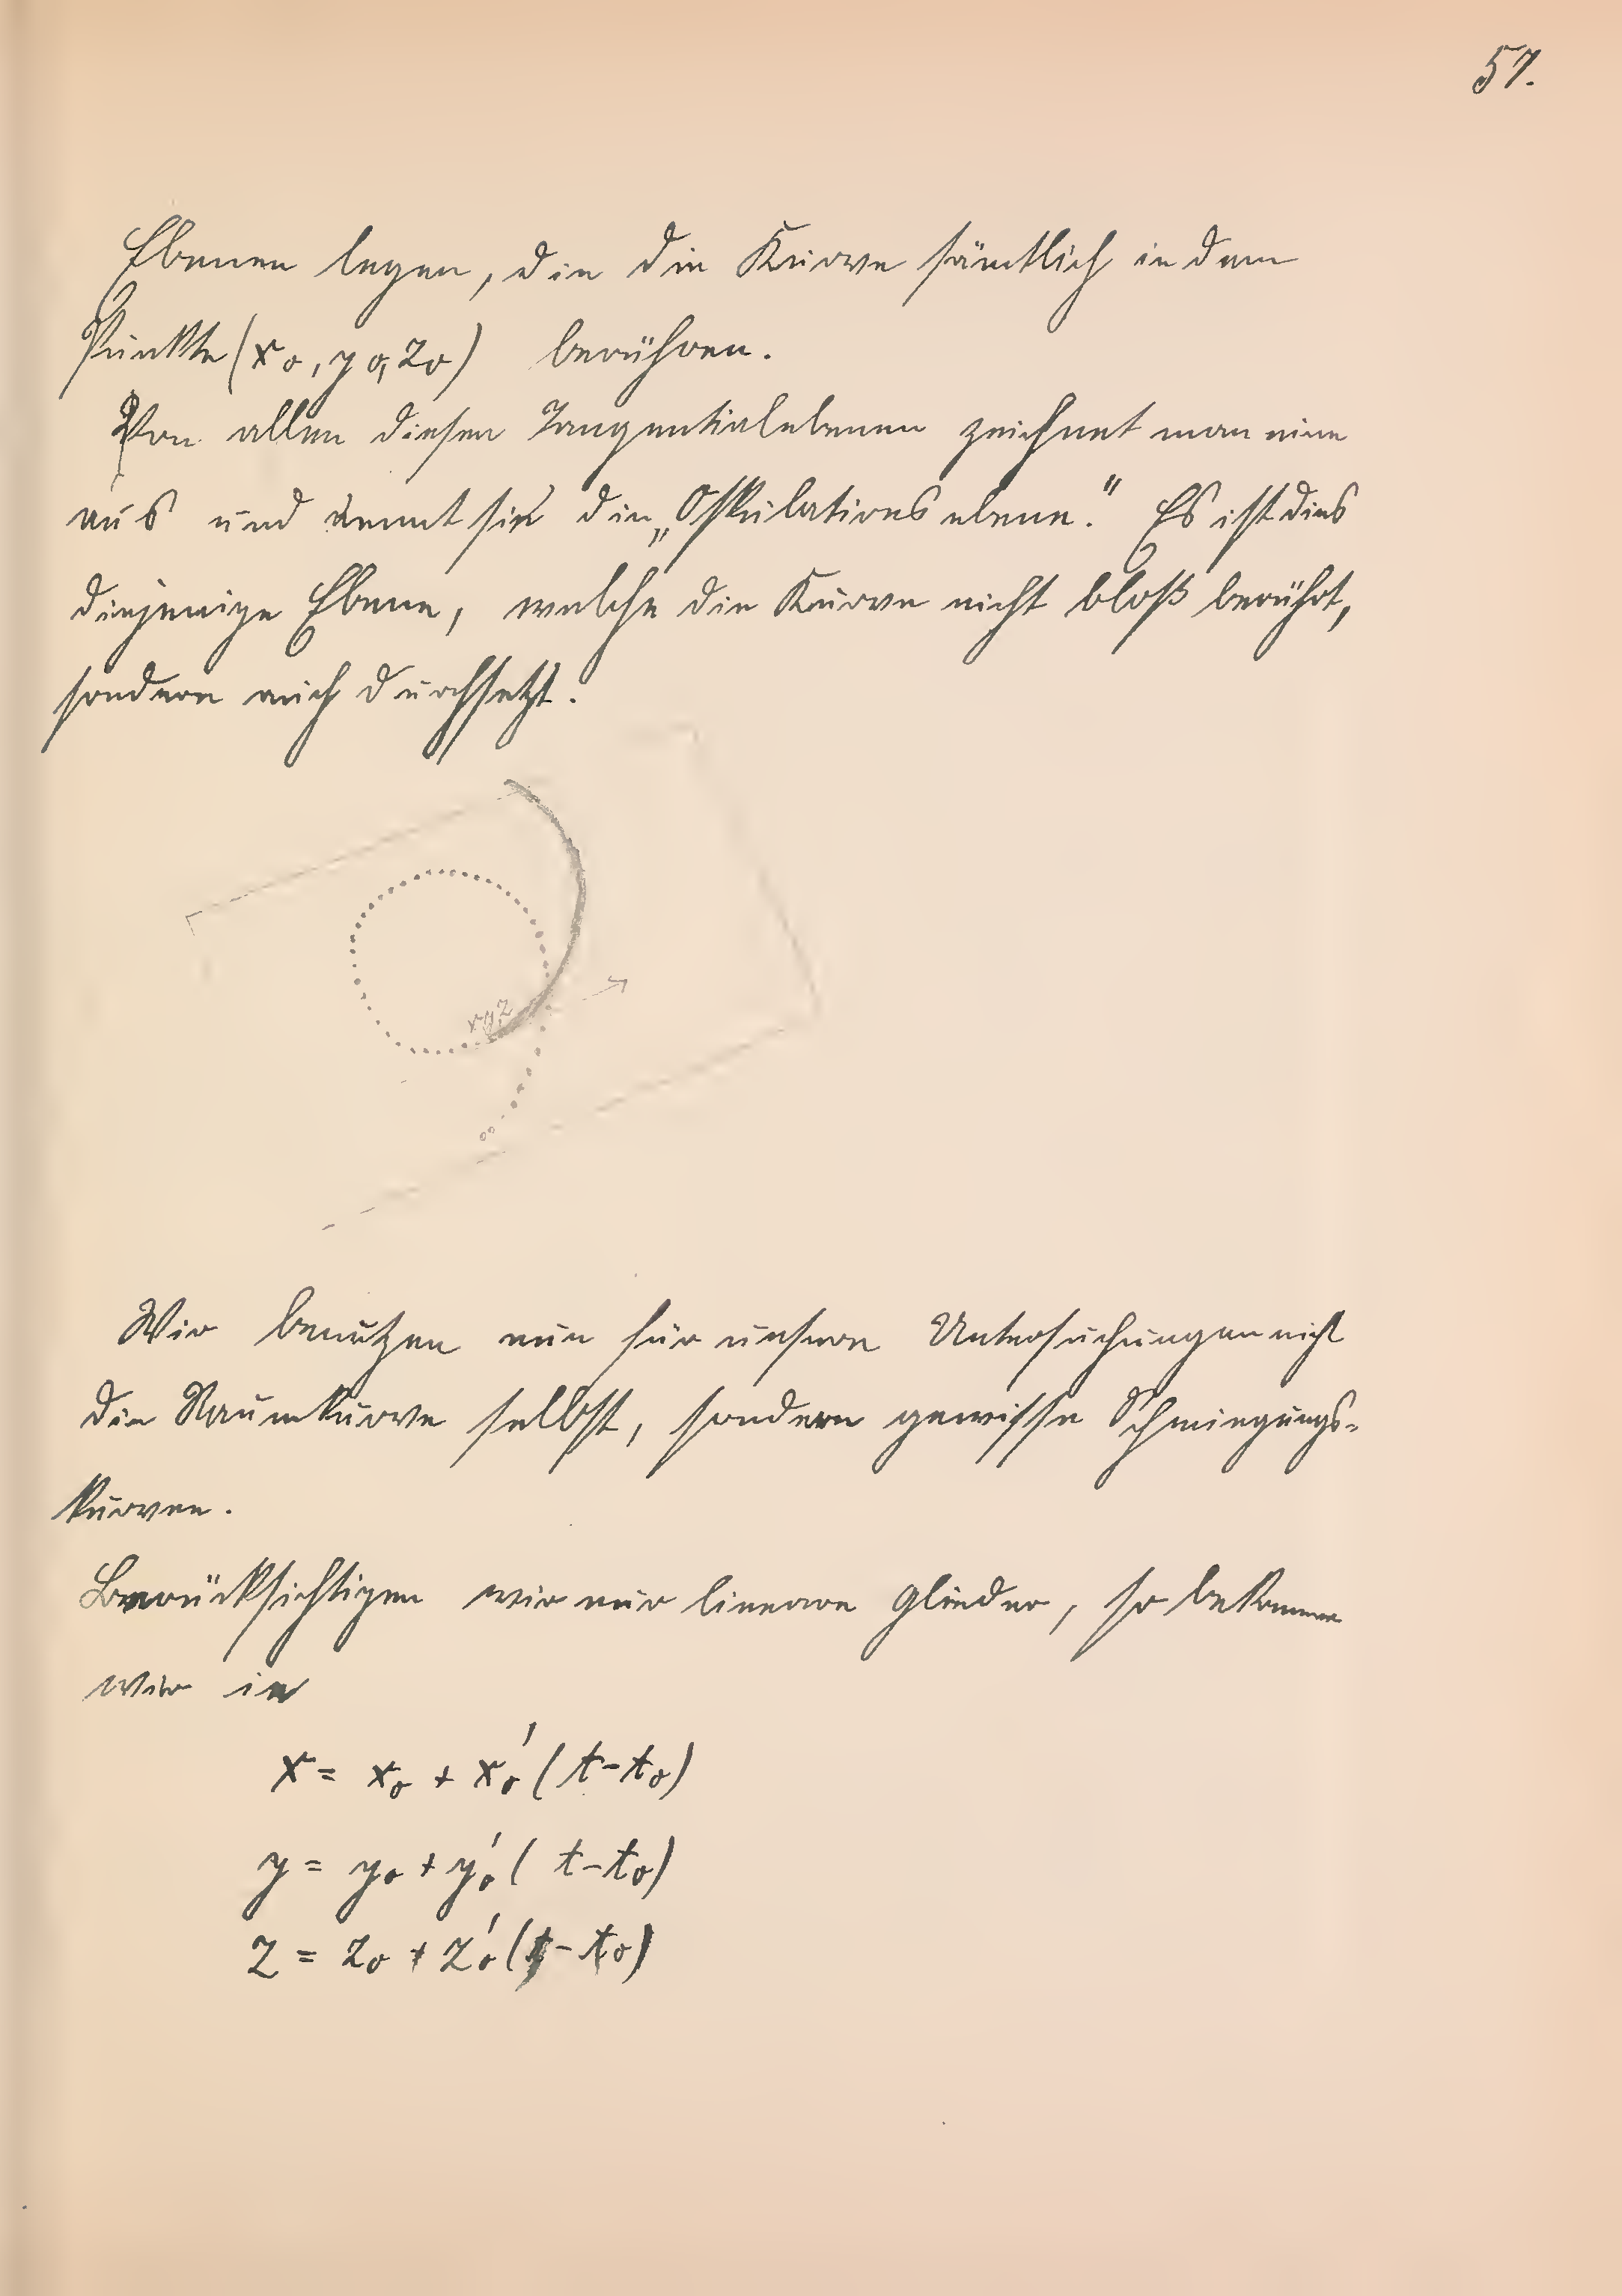 57.
Ebenen legen, die die Kurve sämtlich in dem
Punkte (x₀, y₀, z₀) berühren.
Von allen diesen Tangentialebenen zeichnet man eine
aus und nennt sie die „Oskulationsebene." Es ist dies
diejenige Ebene, welche die Kurve nicht bloß berührt,
sondern auch durchsetzt.
x y z
Wir benutzen nun für unsere Untersuchungen nicht
die Raumkurve selbst, sondern gewisse Schmiegungs-
kurven.
Berücksichtigen wir nur lineare Glieder, so bekommen
wir in
x = x₀ + x₀′ (t - t₀)
y = y₀ + y₀′ (t - t₀)
z = z₀ + z₀′ (t - t₀)